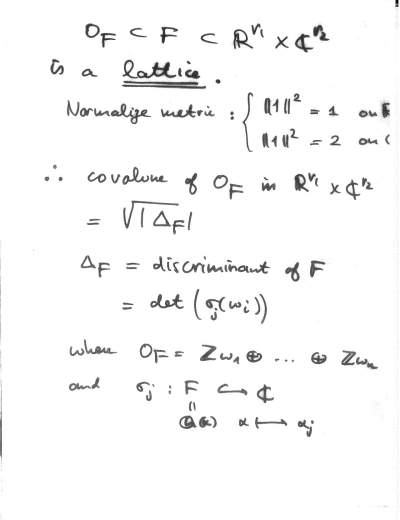 O_F ⊂ F ⊂ ℝ^{r_1} × ℂ^{r_2}
is a lattice.
Normalize metric : { ‖1‖² = 1 on ℝ
‖1‖² = 2 on ℂ
∴ covolume of O_F in ℝ^{r_1} × ℂ^{r_2}
= √|Δ_F|
Δ_F = discriminant of F
= det (σ_j(ω_i))
where O_F = ℤω_1 ⊕ ... ⊕ ℤω_n
and σ_j : F ↪ ℂ
||
ℚ(α) α ↦ α_j